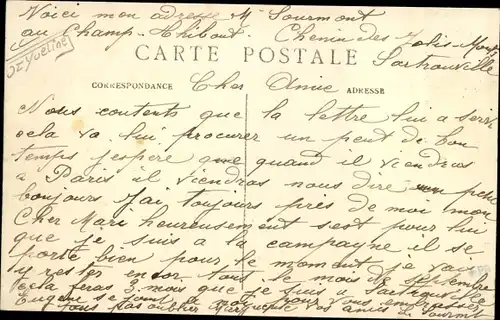 Voici mon adresse Mr Sourmont
au Champ Thibout Chemin des Jolis Monts
Sartrouville
Oz Yveline
CARTE POSTALE
CORRESPONDANCE Cher Amie ADRESSE
Nous contents que la lettre lui a servi
cela va lui procurer un peut de bon
temps j'espère que quand il viendras
a Paris il viendras nous dire petit
bonjours J'ai toujours près de moi mon
Cher Mari heureusement sest pour lui
que je suis a la campagne il se
porte bien pour le moment je vais
y rester encor tous le mois de Septembre
cela feras 3 mois que je suis a Sartrouville
Eugene se joint a moi pour vous embrasser
tous pas oublier Marguerite vos amis L. Sourmont